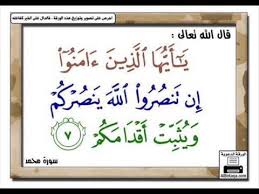 احرص على تصوير وتوزيع هذه الورقة - فالدال على الخير كفاعله
قال الله تعالى :
يَٰٓأَيُّهَا ٱلَّذِينَ ءَامَنُوٓا۟
إِن تَنصُرُوا۟ ٱللَّهَ يَنصُرْكُمْ
وَيُثَبِّتْ أَقْدَامَكُمْ ٧
سورة محمد
الورقة الدعوية